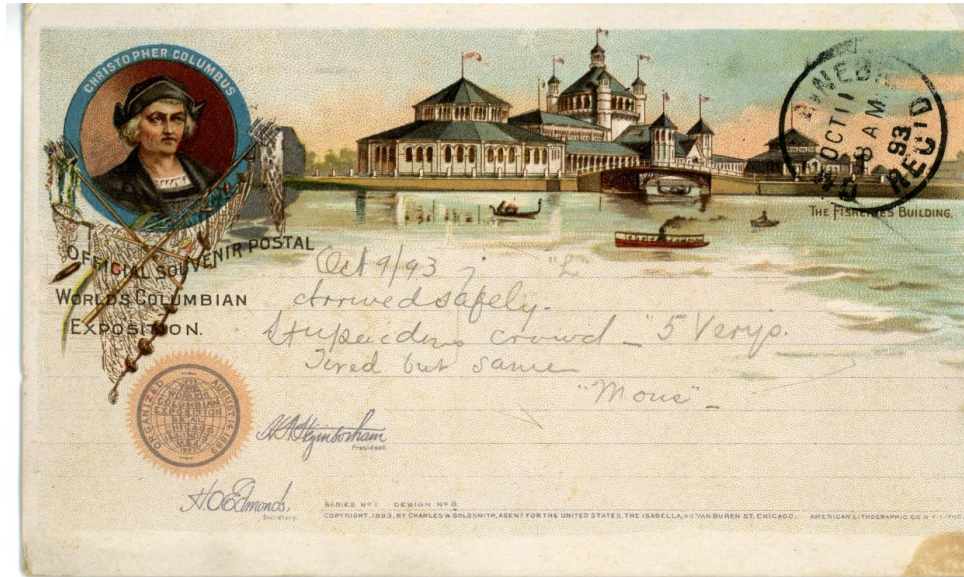 CHRISTOPHER COLUMBUS
OCT 11
8 AM
93
REC'D
THE FISHERIES BUILDING.
OFFICIAL SOUVENIR POSTAL
WORLDS COLUMBIAN
EXPOSITION.
Oct 9/93 "L"
Arrived safely.
Stupendous crowd - "5 Verys.
Tired but same
"Mous" -
ORGANIZED AUGUST 14 1889
President.
H.O. Edmonds,
Secretary.
SERIES Nº 1 DESIGN Nº 8
COPYRIGHT, 1893, BY CHARLES W. GOLDSMITH, AGENT FOR THE UNITED STATES, THE ISABELLA, VAN BUREN ST. CHICAGO. AMERICAN LITHOGRAPHIC CO. N.Y.